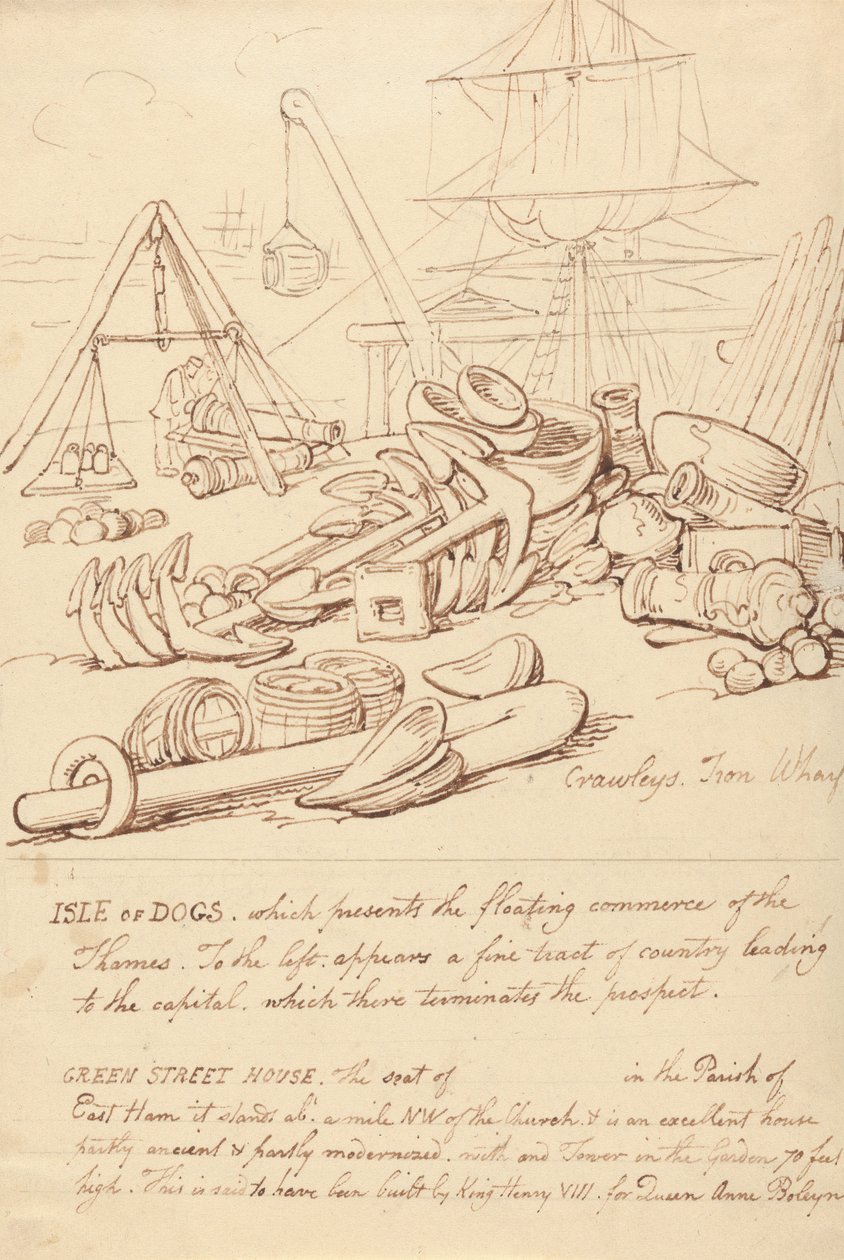 Crawleys. Iron Wharf
ISLE OF DOGS. which presents the floating commerce of the
Thames. To the left. appears a fine tract of country leading
to the capital. which there terminates the prospect.
GREEN STREET HOUSE. The seat of in the Parish of
East Ham it stands abt. a mile NW of the Church. & is an excellent house
partly ancient & partly modernized. with and Tower in the Garden 70 feet
high. This is said to have been built by King Henry VIII. for Queen Anne Boleyn